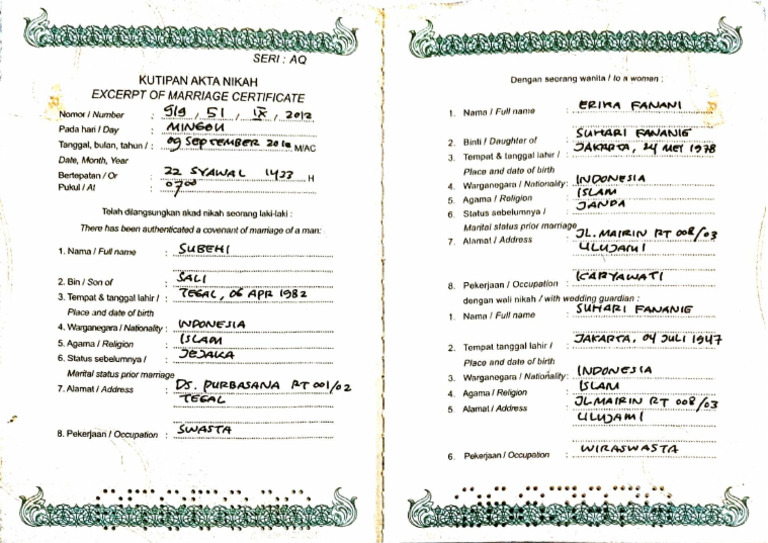 SERI : AQ
KUTIPAN AKTA NIKAH
EXCERPT OF MARRIAGE CERTIFICATE
Nomor / Number : 919 / 51 / IX / 2012
Pada hari / Day : MINGGU
Tanggal, bulan, tahun / : 09 SEPTEMBER 2012 M/AC
Date, Month, Year
Bertepatan / Or : 22 SYAWAL 1433 H
Pukul / At : 0700
Telah dilangsungkan akad nikah seorang laki-laki :
There has been authenticated a covenant of marriage of a man:
1. Nama / Full name : SUBEHI
2. Bin / Son of : SALI
3. Tempat & tanggal lahir / : TEGAL, 06 APR 1982
Place and date of birth
4. Warganegara / Nationality : INDONESIA
5. Agama / Religion : ISLAM
6. Status sebelumnya / : JEJAKA
Marital status prior marriage
7. Alamat / Address : DS. PURBASANA RT 001/02
TEGAL
8. Pekerjaan / Occupation : SWASTA
Dengan seorang wanita / to a woman :
1. Nama / Full name : ERIKA FANANI
2. Binti / Daughter of : SUHARI FANANIE
3. Tempat & tanggal lahir / : JAKARTA, 24 MEI 1978
Place and date of birth
4. Warganegara / Nationality : INDONESIA
5. Agama / Religion : ISLAM
6. Status sebelumnya / : JANDA
Marital status prior marriage
7. Alamat / Address : JL. MAIRIN RT 008/03
ULUJAMI
8. Pekerjaan / Occupation : KARYAWATI
dengan wali nikah / with wedding guardian :
1. Nama / Full name : SUHARI FANANIE
2. Tempat tanggal lahir / : JAKARTA, 04 JULI 1947
Place and date of birth
3. Warganegara / Nationality : INDONESIA
4. Agama / Religion : ISLAM
5. Alamat / Address : JL. MAIRIN RT 008/03
ULUJAMI
6. Pekerjaan / Occupation : WIRASWASTA